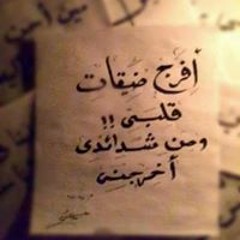 أفرج ضيقات
قلبي !!
ومن شدائدي
أخرجني